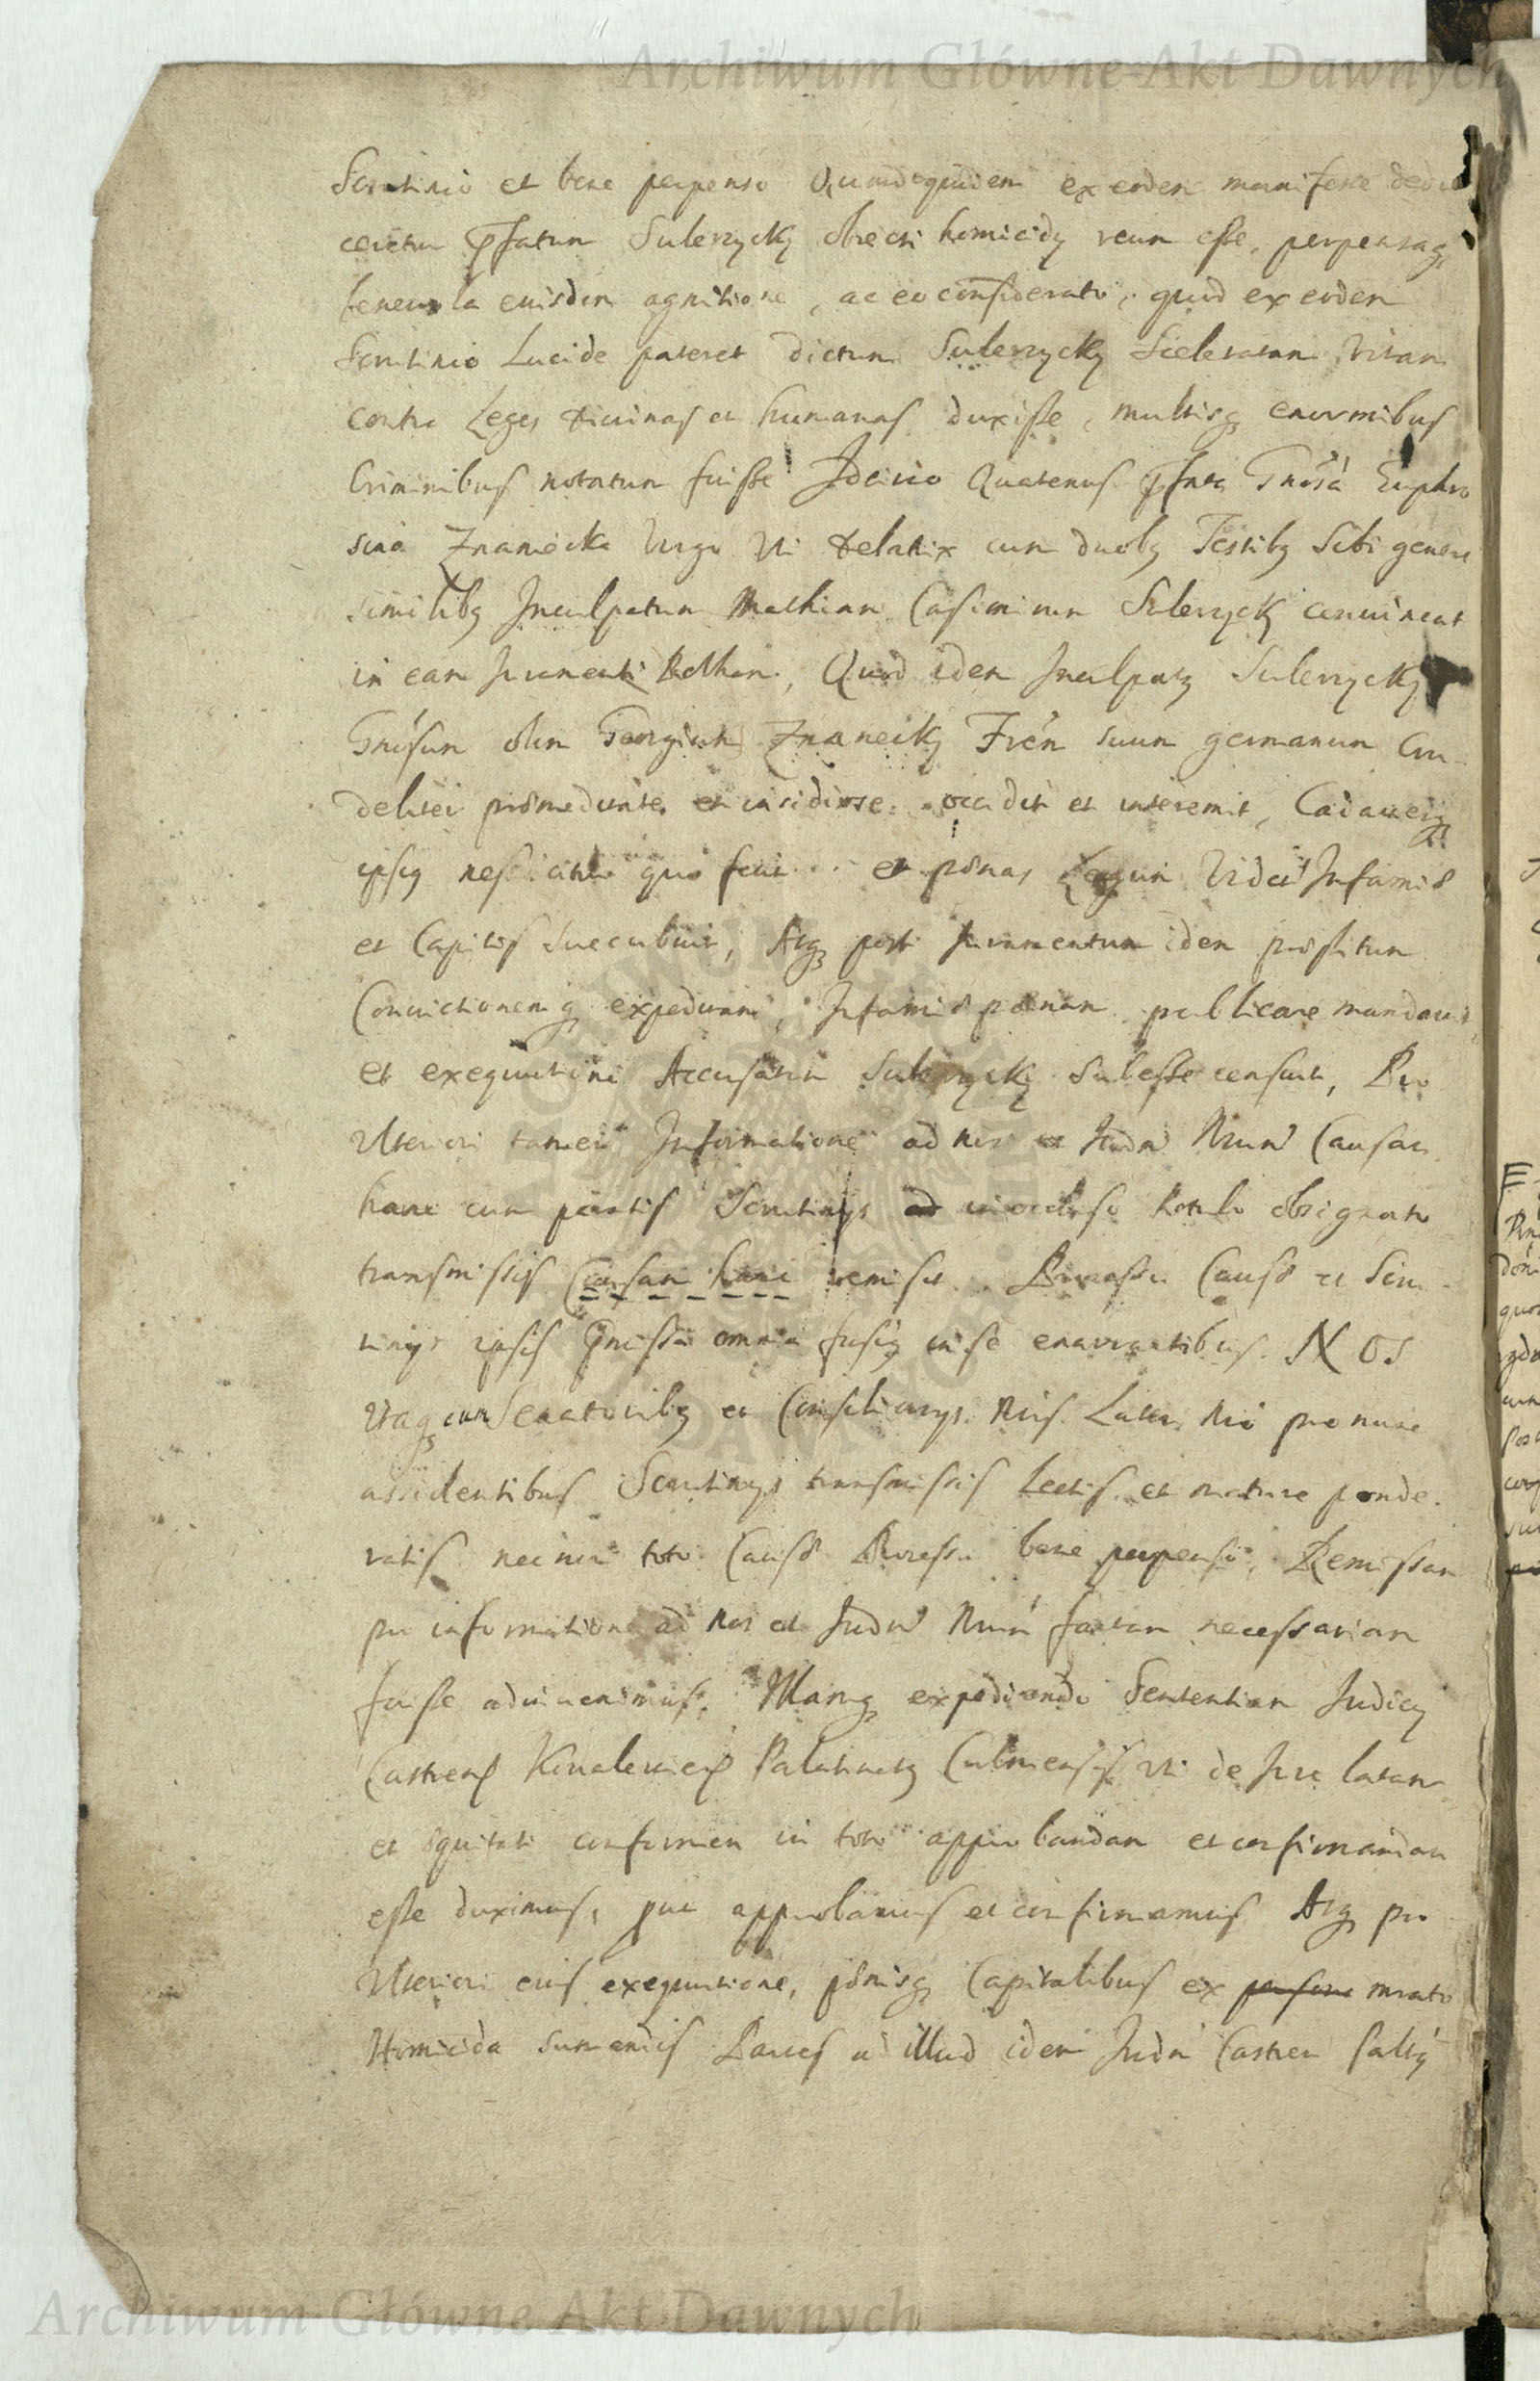 Archiwum Główne Akt Dawnych
Scrutinio et bene perpenso Quandoquidem ex eodem manifeste dedu
ceretur pfatum Sulerzycky obiecti homicidy reum esse, perpensaq,
benevola eiusdem agnitione, ac eo considerato, quod ex eodem
Scrutinio Lucide pateret dictum Sulerzycky Sceleratam Vitam
contra Leges divinas et humanas duxisse, multisq enormibus
Criminibus notatum fuisse Idcirco Quatenus pfata Gnosa Euphro
sina Znaniecka Virgo Uti delatrix cum duobq Testibq Sibi genere
similibq Inculpatum Mathiam Casimirum Sulerzycky convincat
in eam Juramenti Rotham, Quod idem Inculpatq Sulerzycky
Gnosum olim Georgium Znanecky Frem suum germanum Cru
deliter praemeditate et insidiose occidit et interemit, Cadaverq
ipsiq et poenas Legum Videt Infamiae
et Capitis succubuit, Atq post Juramentum idem praestitum
Convictionemq expeditam, Infamiae poenam publicare mandavit
et exequutioni Accusatum Sulerzycky subesse censuit, Pro
Ulteriori tamen Informatione ad nos et Judm Nrum Causam
hanc cum partis Scrutinys ad in occluso Rotulo obsignato
transmissis Causam hanc remisit. Processu Causae et Scru
tinys ipsis praemissa omnia fusiq in se enarrantibus. NOS
Itaq cum Senatoribq et Consiliarys Nris Lateri Nro pro nunc
assidentibus Scrutinys transmissis Lectis et mature ponde.
ratis nec non toto Causae Processu bene perpenso, Remissam
pro informatione ad Nos et Judm Nrum factam necessariam
fuisse adinvenimus, Illamq expediendo Sententiam Judicy
Castren Kovalevien Palatinatq Culmensis Uti de Jure latam
et aequitati conformem in toto approbandam et confirmandam
esse duximus, prout approbamus et confirmamus Atq pro
Ulteriori eius exequutione, poenisq Capitalibus ex mrato
Homicida sumendis Partes ad illud idem Judm Castren
Archiwum Główne Akt Dawnych